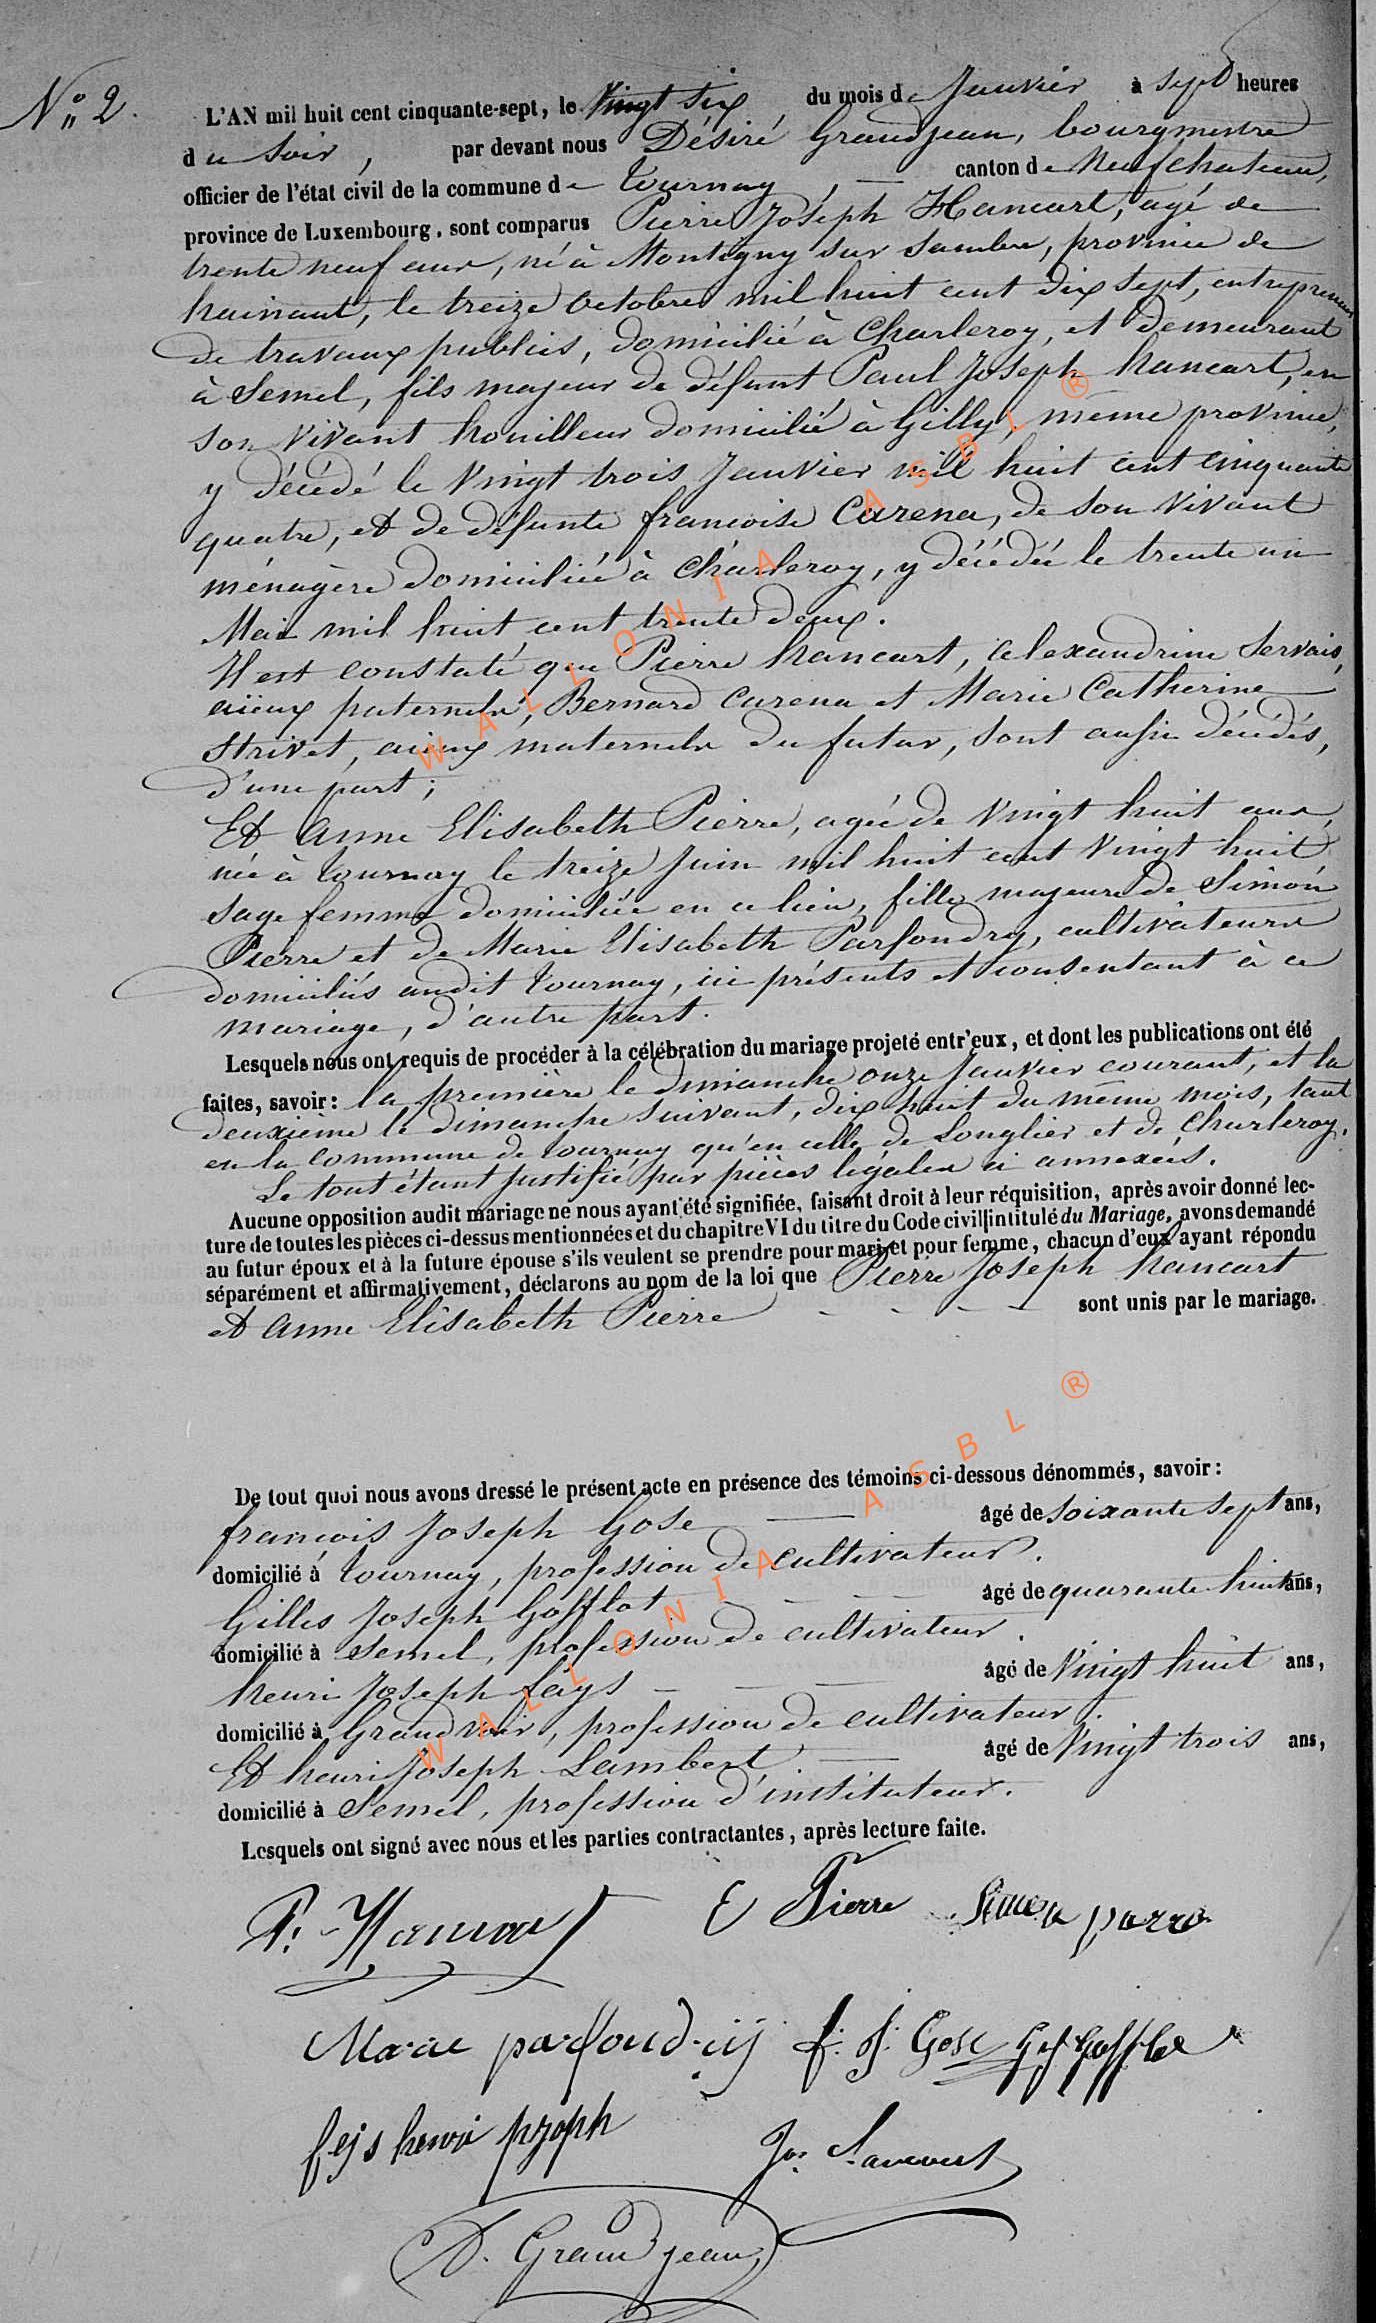 N° 2.
L'AN mil huit cent cinquante-sept, le Vingt six du mois de Janvier à sept heures
du soir, par devant nous Désiré Grandjean, bourgmestre
officier de l'état civil de la commune de Tournay, canton de Neufchateau,
province de Luxembourg, sont comparus Pierre Joseph Hancart, agé de
trente neuf ans, né à Montigny sur Sambre, province de
hainaut, le treize octobre mil huit cent dix sept, entrepreneur
de travaux publics, domicilié à Charleroy, et demeurant
à Semel, fils majeur de défunt Paul Joseph hancart, en
son vivant houilleur domicilié à Gilly, même province,
y décédé le vingt trois Janvier mil huit cent cinquante
quatre, et de défunte francoise Carena, de son vivant
ménagère domiciliée à Charleroy, y décédée le trente un
Mai mil huit cent trente deux.
Il est constaté que Pierre hancart, alexandrine Servais,
aïeux paternels, Bernard Carena et Marie Catherine
Strivet, aïeux maternels du futur, sont aussi décédés,
d'une part;
Et anne Elisabeth Pierre, agée de vingt huit ans,
née à Tournay le treize Juin mil huit cent vingt huit
sage femme domiciliée en ce lieu, fille majeure de Simon
Pierre et de Marie Elisabeth Parfondry, cultivateurs
domiciliés audit Tournay, ici présents et consentant à ce
mariage, d'autre part.
Lesquels nous ont requis de procéder à la célébration du mariage projeté entr'eux, et dont les publications ont été
faites, savoir: la première le dimanche onze Janvier courant, et la
deuxième le dimanche suivant, dix huit du même mois, tant
en la commune de Tournay qu'en celle de Longlier et de Charleroy.
Le tout étant justifié par pièces légales ci annexées.
Aucune opposition audit mariage ne nous ayant été signifiée, faisant droit à leur réquisition, après avoir donné lec-
ture de toutes les pièces ci-dessus mentionnées et du chapitre VI du titre du Code civil intitulé du Mariage, avons demandé
au futur époux et à la future épouse s'ils veulent se prendre pour mari et pour femme, chacun d'eux ayant répondu
séparément et affirmativement, déclarons au nom de la loi que Pierre Joseph hancart
et anne Elisabeth Pierre - - - - sont unis par le mariage.
De tout quoi nous avons dressé le présent acte en présence des témoins ci-dessous dénommés, savoir:
francois Joseph Gose — âgé de soixante sept ans,
domicilié à Tournay, profession de cultivateur.
Gilles Joseph Gofflot - - - âgé de quarante huit ans,
domicilié à Semel, profession de cultivateur.
henri Joseph feys - - — âgé de vingt huit ans,
domicilié à Grandvoir, profession de cultivateur.
Et henri Joseph Lambert — âgé de vingt trois ans,
domicilié à Semel, profession d'instituteur.
Lesquels ont signé avec nous et les parties contractantes, après lecture faite.
P. Hancart E Pierre Simon
Marie parfondrij f. J. Gose
feijs henri
D. Grandjean
WALLONIA ASBL ®
WALLONIA ASBL ®